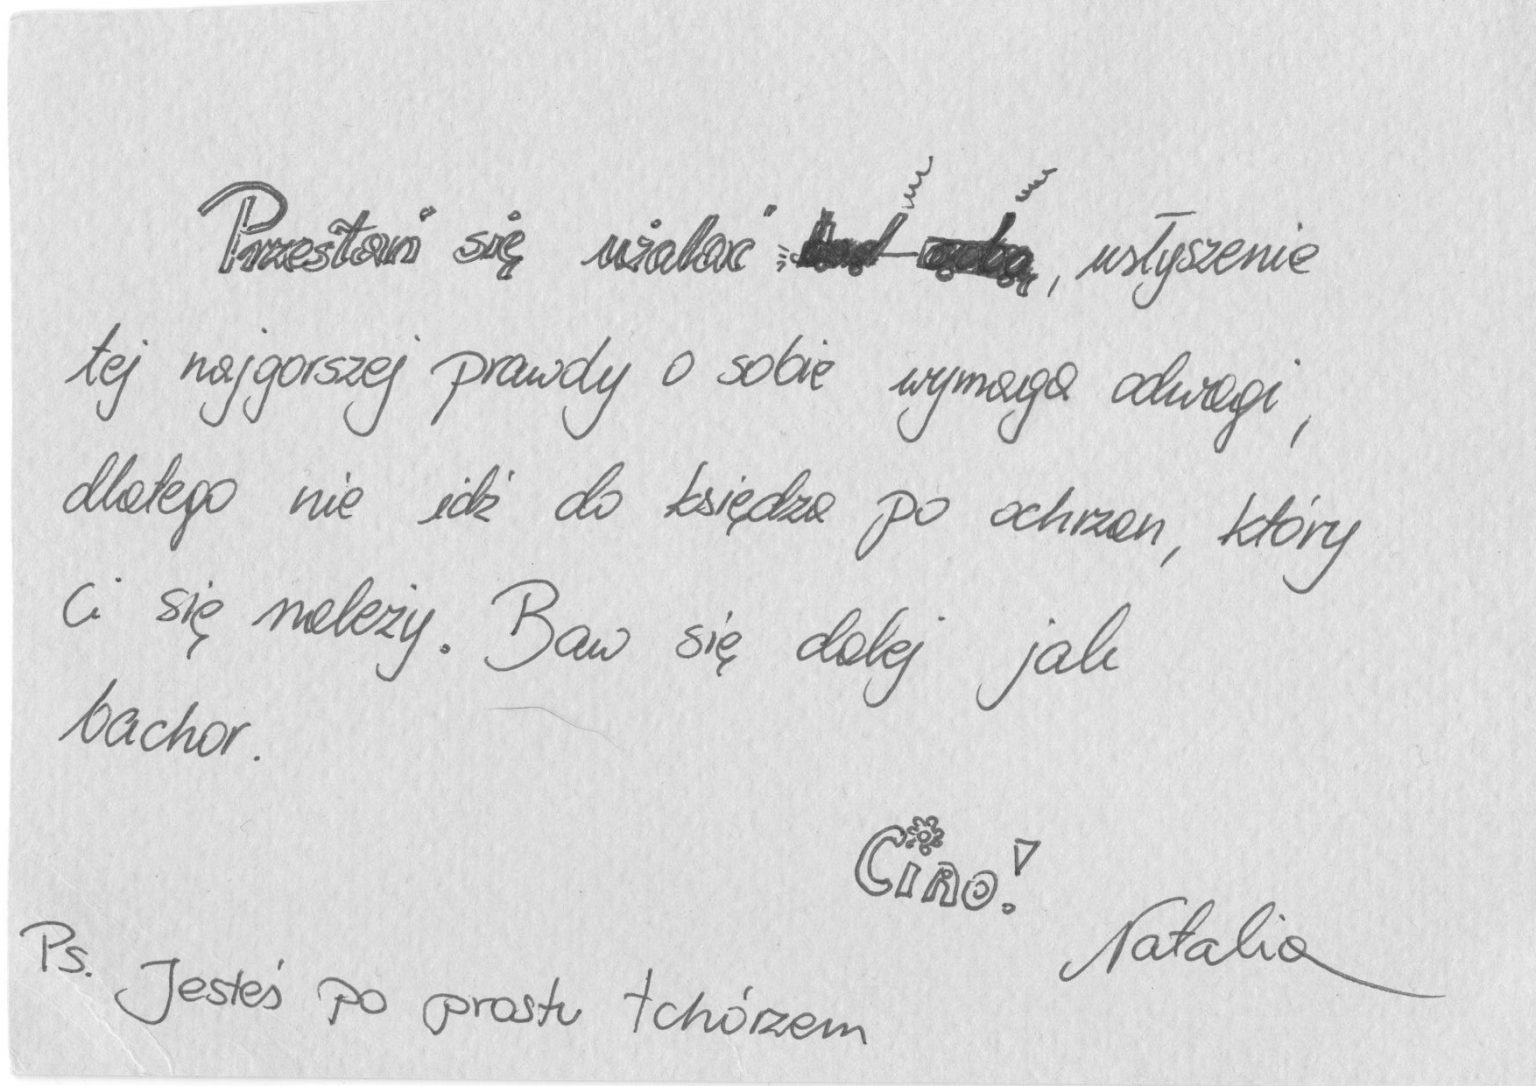 Przestań się użalać nad sobą, usłyszenie
tej najgorszej prawdy o sobie wymaga odwagi,
dlatego nie idź do księdza po ochrzan, który
Ci się należy. Baw się dalej jak
bachor.
Ciao!
Natalia
Ps. Jesteś po prostu tchórzem